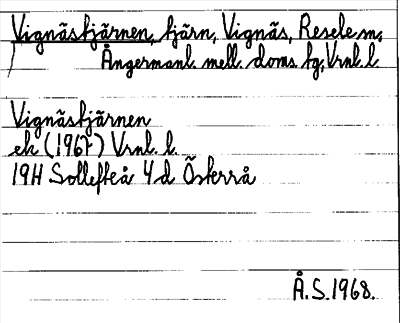 Vignästjärnen, tjärn, Vignäs, Resele sn,
Ångermanl. mell. doms. tg, Vrnl. l.
Vignästjärnen
ek (1967) Vrnl. l.
19H Sollefteå 4d Österrå
Å.S. 1968.